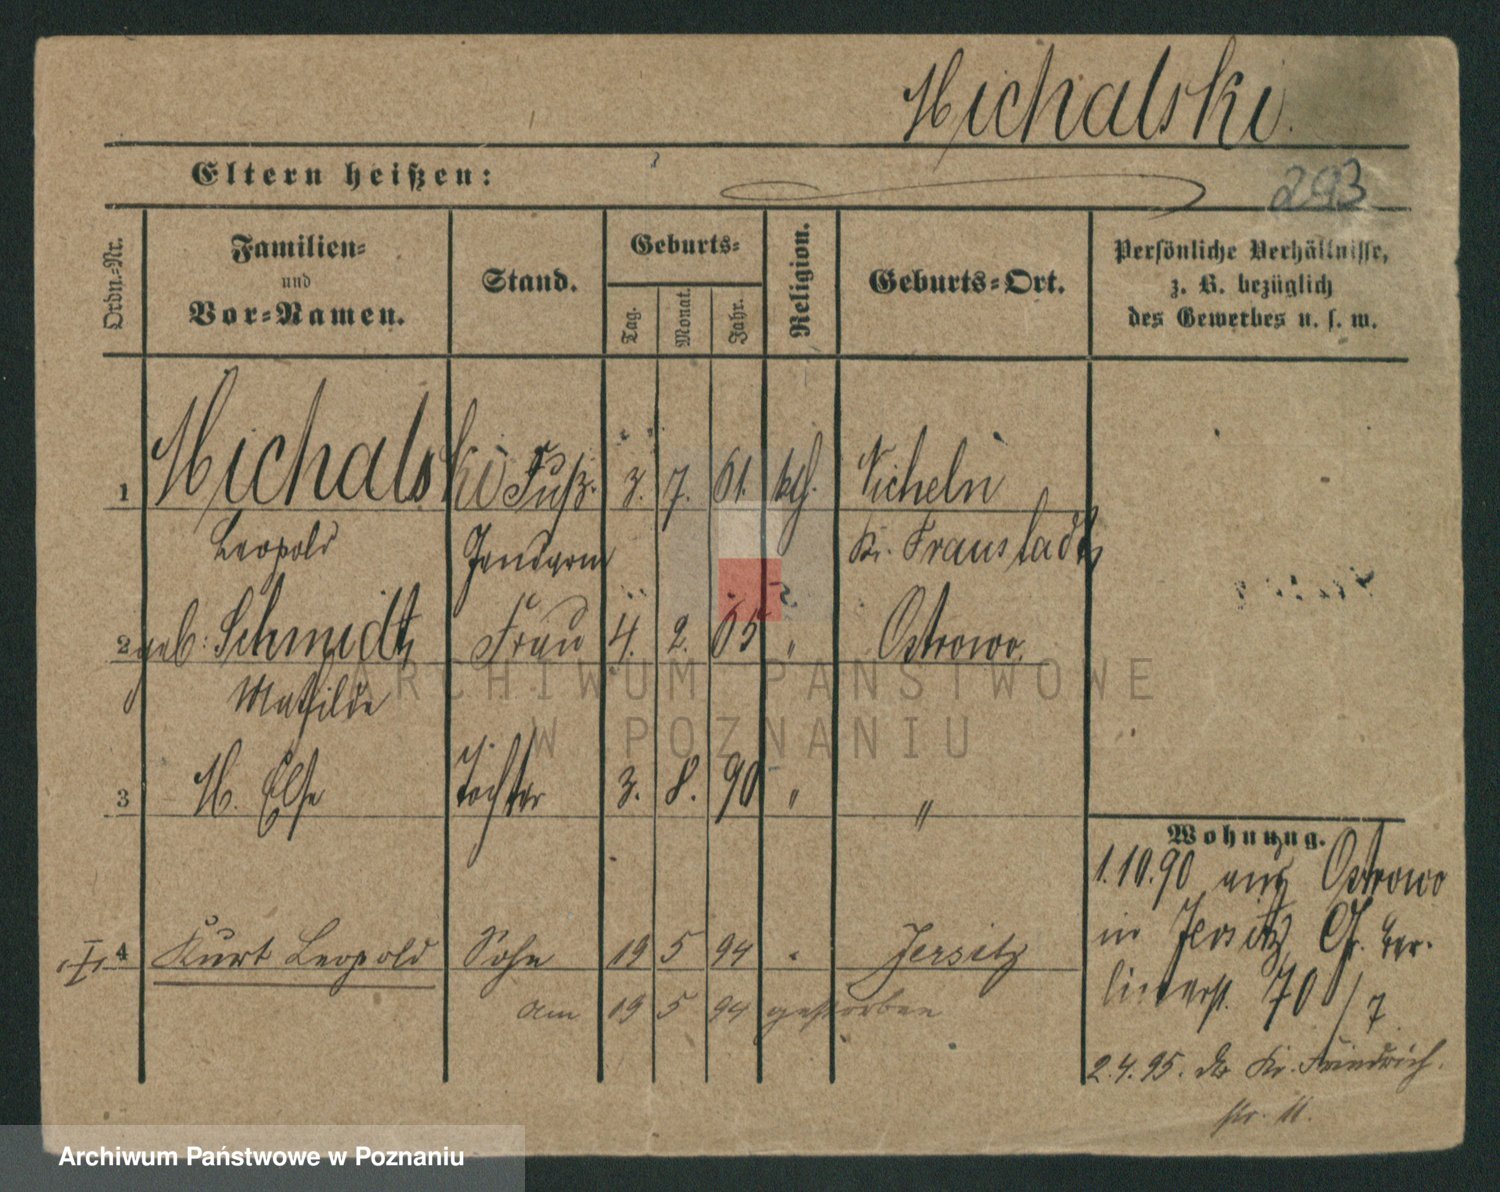 Michalski.
Eltern heißen:
293
Ordn.-Nr.
Familien-
und
Vor-Namen.
Stand.
Geburts-
Tag.
Monat.
Jahr.
Religion.
Geburts-Ort.
Persönliche Verhältnisse,
z. B. bezüglich
des Gewerbes u. s. w.
1 Michalski Fuß- 3. 7. 61. kth. Nicheln
Leopold Gendarm Kr. Fraustadt
2 geb: Schmidt Frau 4. 2. 65 " Ostrowo.
Mathilde
3 M. Else Tochter 3. 8. 90 " "
4 Kurt Leopold Sohn 19 5 94 " Jersitz
am 19 5 94 gestorben
Wohnung.
1.10.90 aus Ostrowo
in Jersitz, Gr. Ber-
linerst. 70/7
2.4.95. Kr. Friedrich-
str. 11.
ARCHIWUM PAŃSTWOWE
W POZNANIU
Archiwum Państwowe w Poznaniu